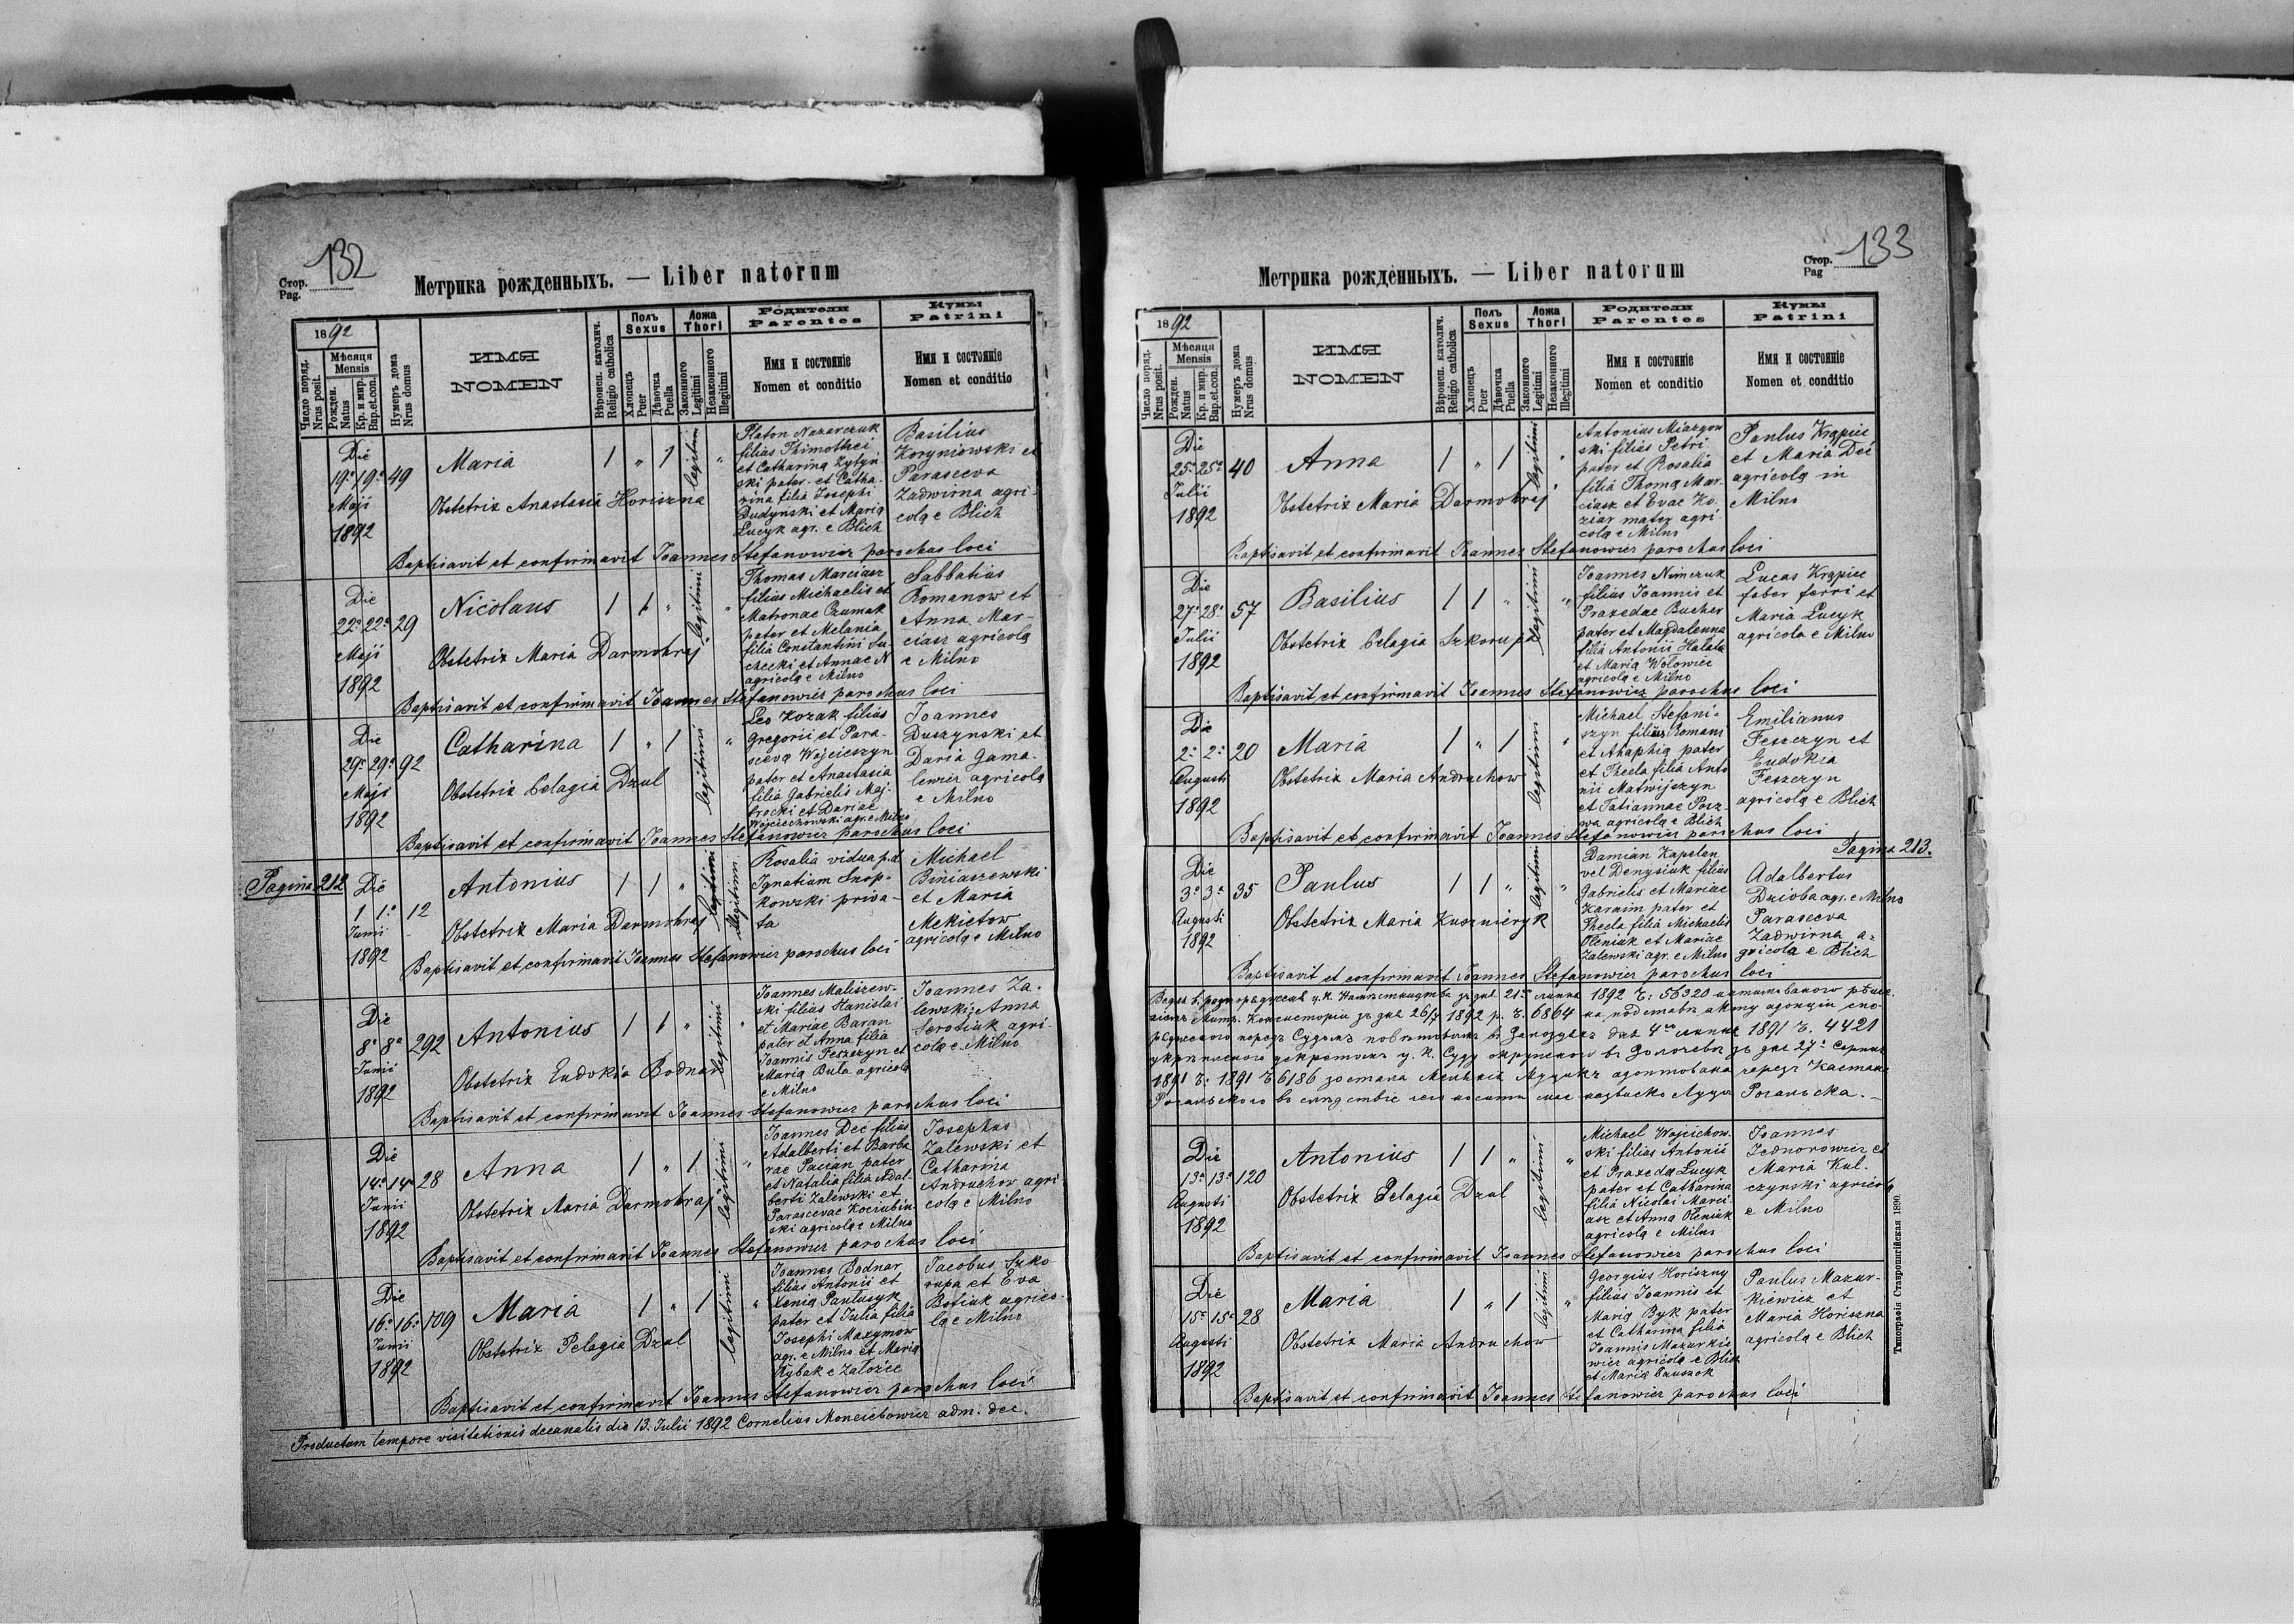 Стор. Pag. 132
Метрика рожденныхъ. — Liber natorum
1892
Число поряд. Nrus posit.
Мѣсяця Mensis
Рожден. Natus
Кр. и мир. Bap. et con.
Нумеръ дома Nrus domus
ИМЯ
NOMEN
Вѣроисп. католич. Religio catholica
Полъ Sexus
Хлопецъ Puer
Дѣвочка Puella
Ложа Thori
Законного Legitimi
Незаконного Illegitimi
Родители
Parentes
Имя и состоянie
Nomen et conditio
Кумы
Patrini
Имя и состоянie
Nomen et conditio
Die
19ᵃ 19ᵃ 49
Maji
1892
Maria
1 „ 1 legitimi „
Obstetrix Anastasia Horiszna
Platon Nazarczuk
filius Thimothei
et Catharina Zytyń
ski pater et Catha-
rina filia Josephi
Dudynski et Maria
Lucyk agr. e Blich
Basilius
Koryniowski et
Parasceva
Zadwirna agri-
cola e Blich
Baptisavit et confirmavit Joannes Stefanowicz parochus loci
Die
22ᵃ 22ᵃ 29
Maji
1892
Nicolaus
1 1 „ legitimi „
Obstetrix Maria Darmohraj
Thomas Marciasz
filius Michaelis et
Matronae Czumak
pater et Melania
filia Constantini Su-
checki et Annae N
agricola e Milno
Sabbatius
Romanow et
Anna Mar-
ciasz agricola
e Milno
Baptisavit et confirmavit Joannes Stefanowicz parochus loci
Die
29ᵃ 29ᵃ 92
Maji
1892
Catharina
1 „ 1 legitimi „
Obstetrix Pelagia Dzul
Leo Kozak filius
Gregorii et Para-
sceva Wojcieszyn
pater et Anastasia
filia Gabrielis Maj-
brocki et Dariae
Wojciechowski agr. e Milno
Joannes
Duszynski et
Daria Gama-
lewicz agricola
e Milno
Baptisavit et confirmavit Joannes Stefanowicz parochus loci
Pagina 212
Die
1 1ᵃ 12
Junii
1892
Antonius
1 1 „ legitimi illegitimi
Obstetrix Maria Darmohraj
Rosalia vidua p.d
Ignatium Snop-
kowski priva-
ta
Michael
Biniaszewski
et Maria
Mekietow
agricola e Milno
Baptisavit et confirmavit Joannes Stefanowicz parochus loci
Die
8ᵃ 8ᵃ 292
Junii
1892
Antonius
1 1 „ legitimi „
Obstetrix Eudokia Bodnar
Joannes Maliszew-
ski filius Stanislai
et Mariae Baran
pater et Anna filia
Joannis Feszczyn et
Maria Bula agricola
e Milno
Joannes Za-
lewski Anna
Serotiuk agri-
cola e Milno
Baptisavit et confirmavit Joannes Stefanowicz parochus loci
Die
14ᵃ 14ᵃ 28
Junii
1892
Anna
1 „ 1 legitimi „
Obstetrix Maria Darmohraj
Joannes Dec filius
Adalberti et Barba
rae Pacian pater
et Natalia filia Adal-
berti Zalewski et
Parascevae Kociubin-
ski agricola e Milno
Josephus
Zalewski et
Catharina
Andruchow agri-
cola e Milno
Baptisavit et confirmavit Joannes Stefanowicz parochus loci
Die
16ᵃ 16ᵃ 109
Junii
1892
Maria
1 „ 1 legitimi „
Obstetrix Pelagia Dzul
Joannes Bodnar
filius Antonii et
Xenia Pantusyk
pater et Julia filia
Josephi Maxymow
agr. e Milno et Maria
Rybak e Załoźce
Jacobus Szko-
rupa et Eva
Botiuk agrico-
la e Milno
Baptisavit et confirmavit Joannes Stefanowicz parochus loci
Productum tempore visitationis decanalis die 13. Julii 1892 Cornelius Moncibowicz adm. dec.
Стор. Pag 133
Метрика рожденныхъ. — Liber natorum
1892
Число поряд. Nrus posit.
Мѣсяця Mensis
Рожден. Natus
Кр. и мир. Bap. et con.
Нумеръ дома Nrus domus
ИМЯ
NOMEN
Вѣроисп. католич. Religio catholica
Полъ Sexus
Хлопецъ Puer
Дѣвочка Puella
Ложа Thori
Законного Legitimi
Незаконного Illegitimi
Родители
Parentes
Имя и состоянie
Nomen et conditio
Кумы
Patrini
Имя и состоянie
Nomen et conditio
Die
25ᵃ 25ᵃ 40
Julii
1892
Anna
1 „ 1 legitimi „
Obstetrix Maria Darmohraj
Antonius Miazgow
ski filius Petri
pater et Rosalia
filia Thoma Mar-
ciasz et Evae Ko-
ziar mater agri-
cola e Milno
Paulus Krąpiec
et Maria Dec
agricola in
Milno
Baptisavit et confirmavit Joannes Stefanowicz parochus loci
Die
27ᵃ 28ᵃ 57
Julii
1892
Basilius
1 1 „ legitimi „
Obstetrix Pelagia Szkorupa
Joannes Nimczuk
filius Joannis et
Praxedae Bucher
pater et Magdalenna
filia Antonii Halata
et Maria Wołowiec
agricola e Milno
Lucas Krąpiec
faber ferri et
Maria Lucyk
agricola e Milno
Baptisavit et confirmavit Joannes Stefanowicz parochus loci
Die
2ᵃ 2ᵃ 20
Augusti
1892
Maria
1 „ 1 legitimi „
Obstetrix Maria Andruchow
Michael Stefani-
szyn filius Romani
et Ahaphia pater
et Thecla filia Anto
nii Matwijszyn
et Tatiannae Porz-
wa agricola e Blich
Emilianus
Feszczyn et
Eudokia
Feszczyn
agricola e Blich
Baptisavit et confirmavit Joannes Stefanowicz parochus loci
Pagina 213.
Die
3ᵃ 3ᵃ 35
Augusti
1892
Paulus
1 1 „ legitimi „
Obstetrix Maria Kuszniryk
Damian Kapelan
vel Denysiuk filius
Gabrielis et Mariae
Karaim pater et
Thecla filia Michaelis
Oleniuk et Mariae
Zalewski agr. e Milno
Adalbertus
Dzioba agr. e Milno
Parasceva
Zadwirna a-
gricola e Blich
Baptisavit et confirmavit Joannes Stefanowicz parochus loci
1892 Ч: 56320
26/7 1892 р. Ч. 6864 на подставѣ
1891 Ч. 4421
1891 Ч: 1891 Ч 6186
Die
13ᵃ 13ᵃ 120
Augusti
1892
Antonius
1 1 „ legitimi „
Obstetrix Pelagia Dzul
Michael Wojcichow-
ski filius Antonii
et Praxeda Lucyk
pater et Catharina
filia Nicolai Marci-
asz et Anna Oleniuk
agricola e Milno
Joannes
Jednorowicz et
Maria Kul-
czynski agricola
e Milno
Baptisavit et confirmavit Joannes Stefanowicz parochus loci
Die
15ᵃ 15ᵃ 28
Augusti
1892
Maria
1 „ 1 legitimi „
Obstetrix Maria Andruchow
Georgius Horiszny
filius Joannis et
Maria Byk pater
et Catharina filia
Joannis Mazurkie
wicz agricola e Blich
et Maria
Paulus Mazur-
kiewicz et
Maria Horiszna
agricola e Blich
Baptisavit et confirmavit Joannes Stefanowicz parochus loci
Типографія Ставропигійская 1890.